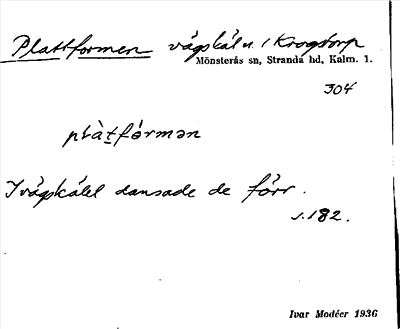 Plattformen vägskäl n. i Krogstorp
Mönsterås sn, Stranda hd, Kalm. l.
304
plàt̠fórmən
I vägskälet dansade de förr.
s. 182.
Ivar Modéer 1936